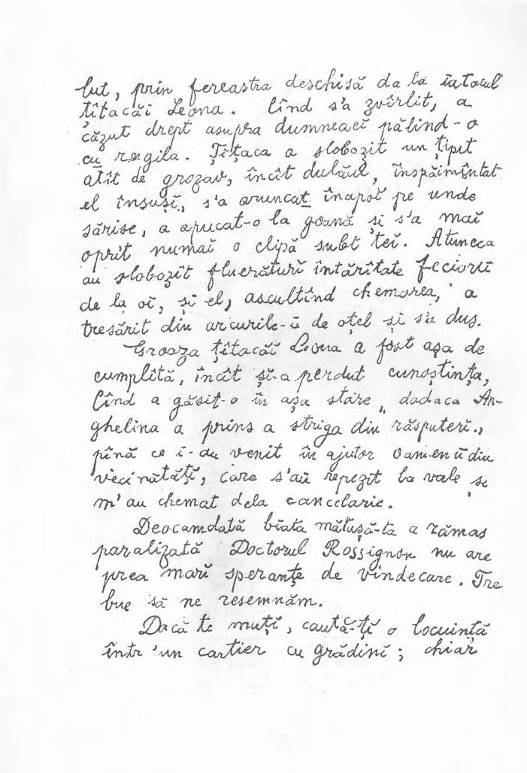 lut, prin fereastra deschisă da la iatacul
țîțacăi Leona. Cînd s'a zvîrlit, a
căzut drept asupra dumneaei pălind-o
cu regila. Țîțaca a slobozit un țipet
atît de grozav, încît dulăul, înspăimîntat
el însuși, s'a aruncat înapoi pe unde
sărise, a apucat-o la goană și s'a mai
oprit numai o clipă subt tei. Atunceа
au slobozit fluerături întărîtate feciorii
de la oi, și el, ascultînd chemarea, a
tresărit din arcurile-i de oțel și s'a dus.
Groaza țîțacăi Leona a fost așa de
cumplită, încît și-a perdut cunoștința,
Cînd a găsit-o în așa stare, dadaca An-
ghelina a prins a striga din răsputeri,
pînă ce i-au venit în ajutor oamenii din
vecinătăți, care s'au repezit la vale și
m'au chemat dela cancelarie.
Deocamdată biata mătușă-ta a rămas
paralizată Doctorul Rossignon nu are
prea mari speranțe de vindecare. Tre
bue să ne resemnăm.
Dacă te muți, caută-ți o locuință
într'un cartier cu grădini; chiar